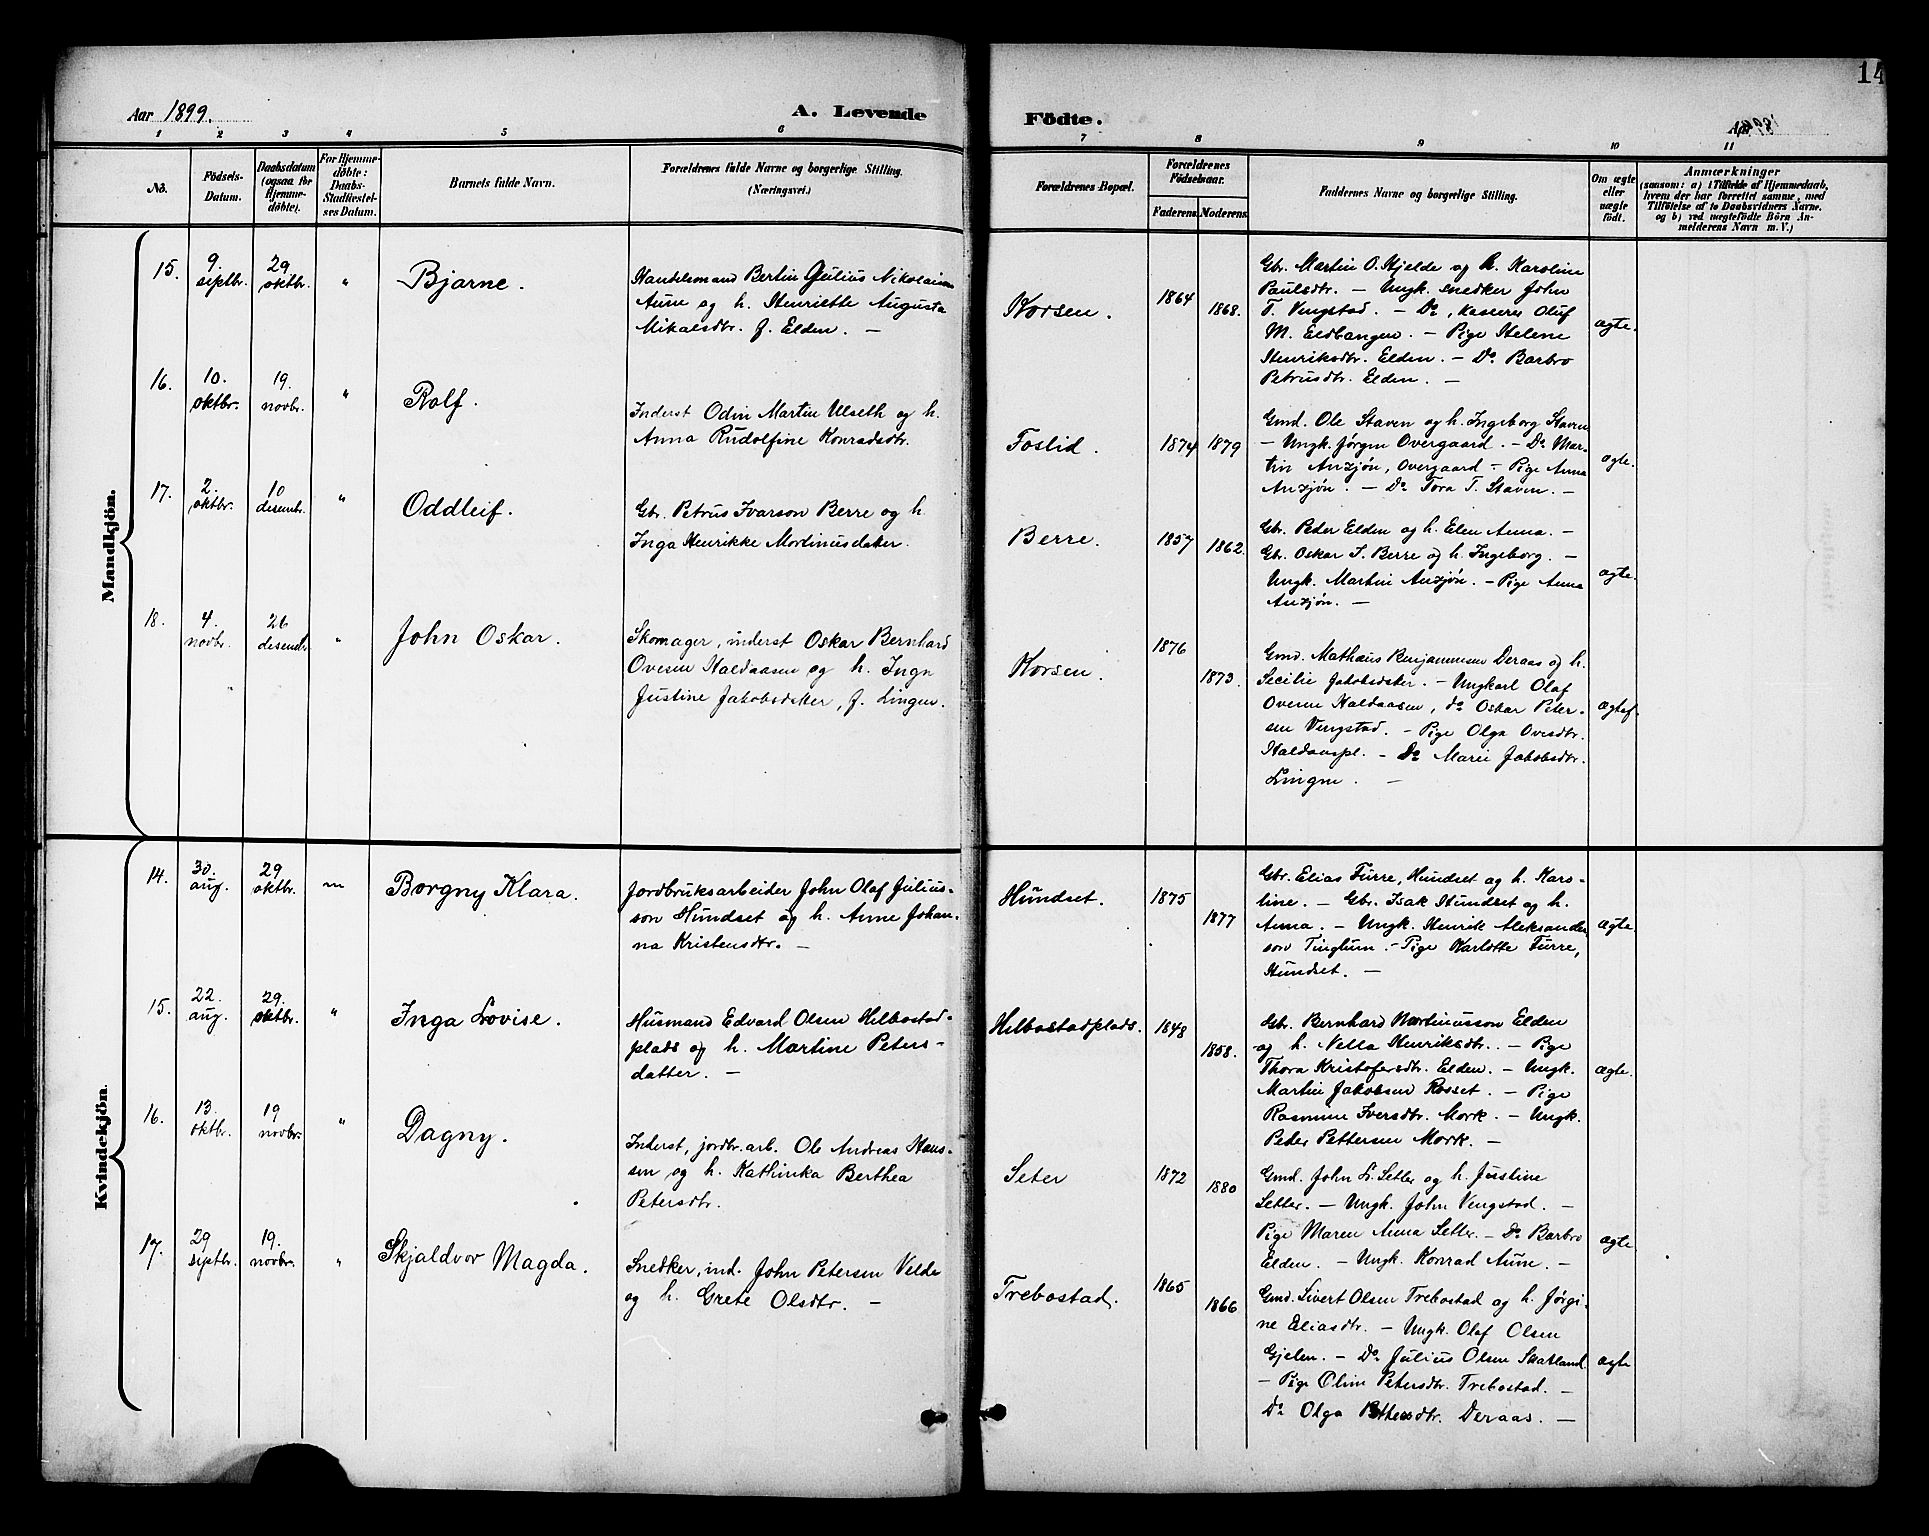 14
Aar 1899.
A. Levende
Födte.
1 2 3 4 5 6
7 8 9 10 11
No.
Födsels-
Datum.
Daabsdatum
(ogsaa for
Hjemme-
döbte).
For Hjemme-
döbte:
Daabs-
Stadfæstel-
ses Datum.
Barnets fulde Navn.
Forældrenes fulde Navne og borgerlige Stilling.
(Næringsvei.)
Forældrenes Bopæl.
Forældrenes
Födselsaar.
Faderens. Moderens.
Faddernes Navne og borgerlige Stilling.
Om ægte
eller
uægte
födt.
Anmærkninger
(saasom: a) i Tilfælde af Hjemmedaab,
hvem der har forrettet samme, med
Tilföielse af to Daabsvidners Navne,
og b) ved uægtefödte Börn An-
melderens Navn m. V.)
Mandkjön.
15.
9.
septbr.
29
oktbr.
"
Bjarne.
Handelsmand Bertin Julius Nikolaisen
Aune og h. Henriette Augusta
Mikalsdtr. f. Elden. —
Korsen.
1864
1868.
Gbr. Martin O. Hjelde og h. Karoline
Paulsdtr. — Ungk. snedker John
T. Vengstad. — Do, kaserer Oluf
M. Eldbangen. — Pige Helene
Henriksdtr. Elden. — Do Barbro
Petrusdtr. Elden. —
ægte.
16.
10.
oktbr.
19.
novbr.
"
Rolf.
Inderst Odin Martin Ulseth og h.
Anna Rudolfine Konradsdtr.
Foslid.
1874
1879
Gmd. Ole Staven og h. Ingeborg Staven
— Ungk. Jørgen Overgaard. — Do Mar-
tin Anzjøn, Overgaard — Pige Anna
Anzjøn. — Do Tora T. Staven. —
ægte.
17.
2.
oktbr.
10
desembr.
"
Oddleif.
Gbr. Petrus Ivarson Berre og h.
Inga Henrikke Mortinusdater.
Berre.
1857
1862.
Gbr. Peder Elden og h. Elen Anna. —
Gb. Oskar I. Berre og h. Ingeborg. —
Ungk. Martin Anzjøn. — Pige Anna
Anzjøn. —
ægte.
18.
4.
novbr.
26
desembr
"
John Oskar.
Skomager, inderst Oskar Bernhard
Ovesen Haldaasen og h. Inga
Justine Jakobsdatter, f. Lingen.
Korsen.
1876
1873.
Gmd. Mathæus Benjaminsen Deraas og h.
Secilie Jakobsdater. — Ungkarl Olaf
Ovesen Haldaasen, do Oskar Peter-
sen Vengstad. — Pige Olga Ovesdtr.
Haldaaspl. — Do Marie Jakobsdtr.
Lingen. —
ægtef.
Kvindekjön.
14.
30.
aug.
29
oktbr.
Borgny Klara.
Jordbruksarbeider John Olaf Julius-
son Hundset og h. Anne Johan-
na Kristensdtr. —
Hundset.
1875
1877
Gbr. Elias Furre, Hundset og h. Kars-
line. — Gbr. Isak Hundset og h.
Anna. — Ungk. Henrik Aleksander
son Tinglum. — Pige Karlotte Furre,
Hundset. —
ægte
15.
22.
aug.
29.
oktbr.
"
Inga Lovise.
Husmand Edvard Olsen Hilbostad-
plads og h. Martine Peters-
datter. —
Hilbostadplads.
1848
1858.
Gbr. Bernhard Martinusson Elden
og h. Nella Henriksdtr. — Pige
Thora Kristofersdtr. Elden. — Ungk.
Martin Jakobsen Rosset. — Pige
Rasmine Iversdtr. Mork. — Ungk.
Peder Pettersen Mork. —
ægte.
16.
13.
oktbr.
19
novbr.
"
Dagny.
Inderst, jordbr. arb. Ole Andreas Hans-
sen og h. Kathinka Berthea
Petersdtr.
Seter
1872
1880
Gmd. John L. Setter og h. Justine
Setter. — Ungk. John Vengstad. —
Pige Maren Anna Setter. — Do Barbro
Elden. — Ungk. Konrad Aune. —
ægte
17.
29
septbr.
19.
novbr.
"
Skjaldvor Magda.
Snedker, ind. John Petersen Velde
og h. Grete Olsdtr. —
Trebostad.
1865
1866
Gmd. Sivert Olsen Trebostad og h. Jørgi-
ne Eliasdtr. — Ungk. Olaf Olsen
Gjelen. — Do Julius Olsen Skatland.
— Pige Oline Petersdtr. Trebostad. —
Do Olga Pettersdtr. Deraas. —
ægte